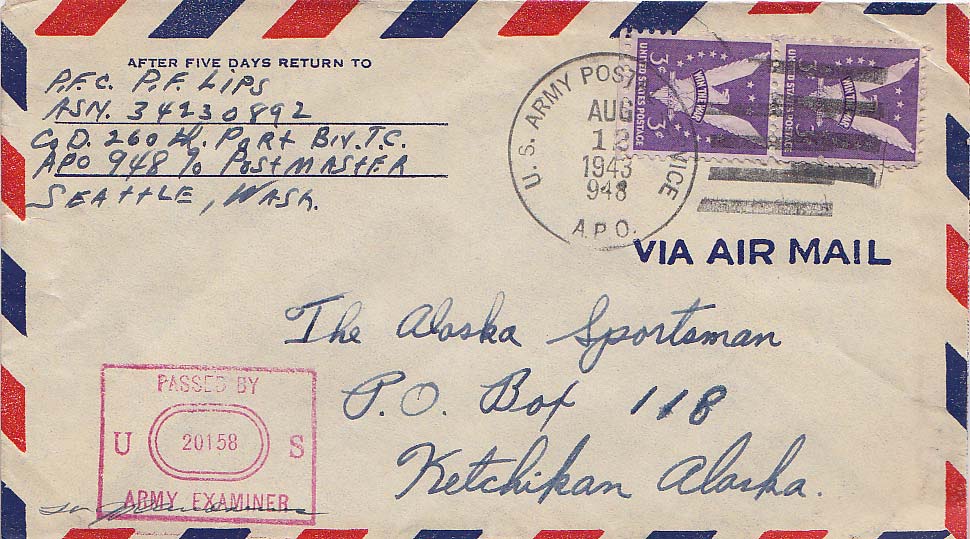 AFTER FIVE DAYS RETURN TO
P.F.C. P.F. LIPS
ASN. 34230892
Co D. 260 th. Port Bn. T.C.
APO 948 % POSTMASTER
SEATTLE, WASH.
U. S. ARMY POSTAL SERVICE
AUG
13
1943
948
A.P.O.
UNITED STATES POSTAGE
3¢ 3¢
WIN THE WAR
UNITED STATES POSTAGE
WIN THE WAR
VIA AIR MAIL
The Alaska Sportsman
P.O. Box 118
Ketchikan Alaska.
PASSED BY
U 20158 S
ARMY EXAMINER